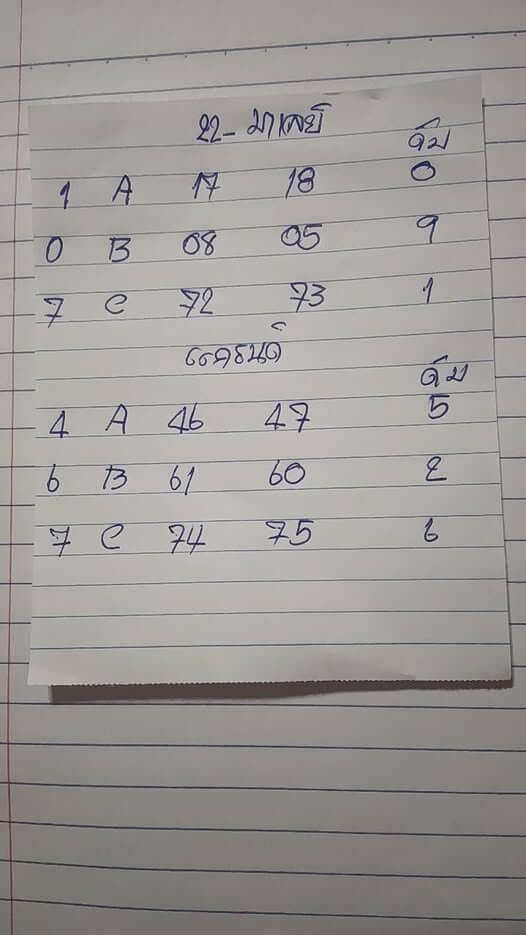 22- มาเลย์
ดับ
1 A 17 18 0
0 B 08 05 9
7 C 72 73 1
แกรนด์
ดับ
4 A 46 47 5
6 B 61 60 2
7 C 74 75 6